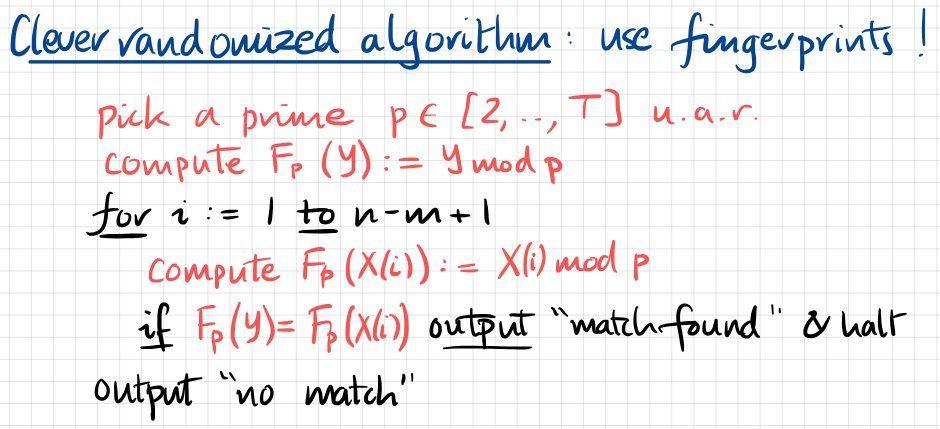 Clever randomized algorithm: use fingerprints!
pick a prime p ∈ [2,..,T] u.a.r.
compute Fp(Y) := Y mod p
for i := 1 to n-m+1
compute Fp(X(i)) := X(i) mod p
if Fp(Y) = Fp(X(i)) output "match found" & halt
output "no match"